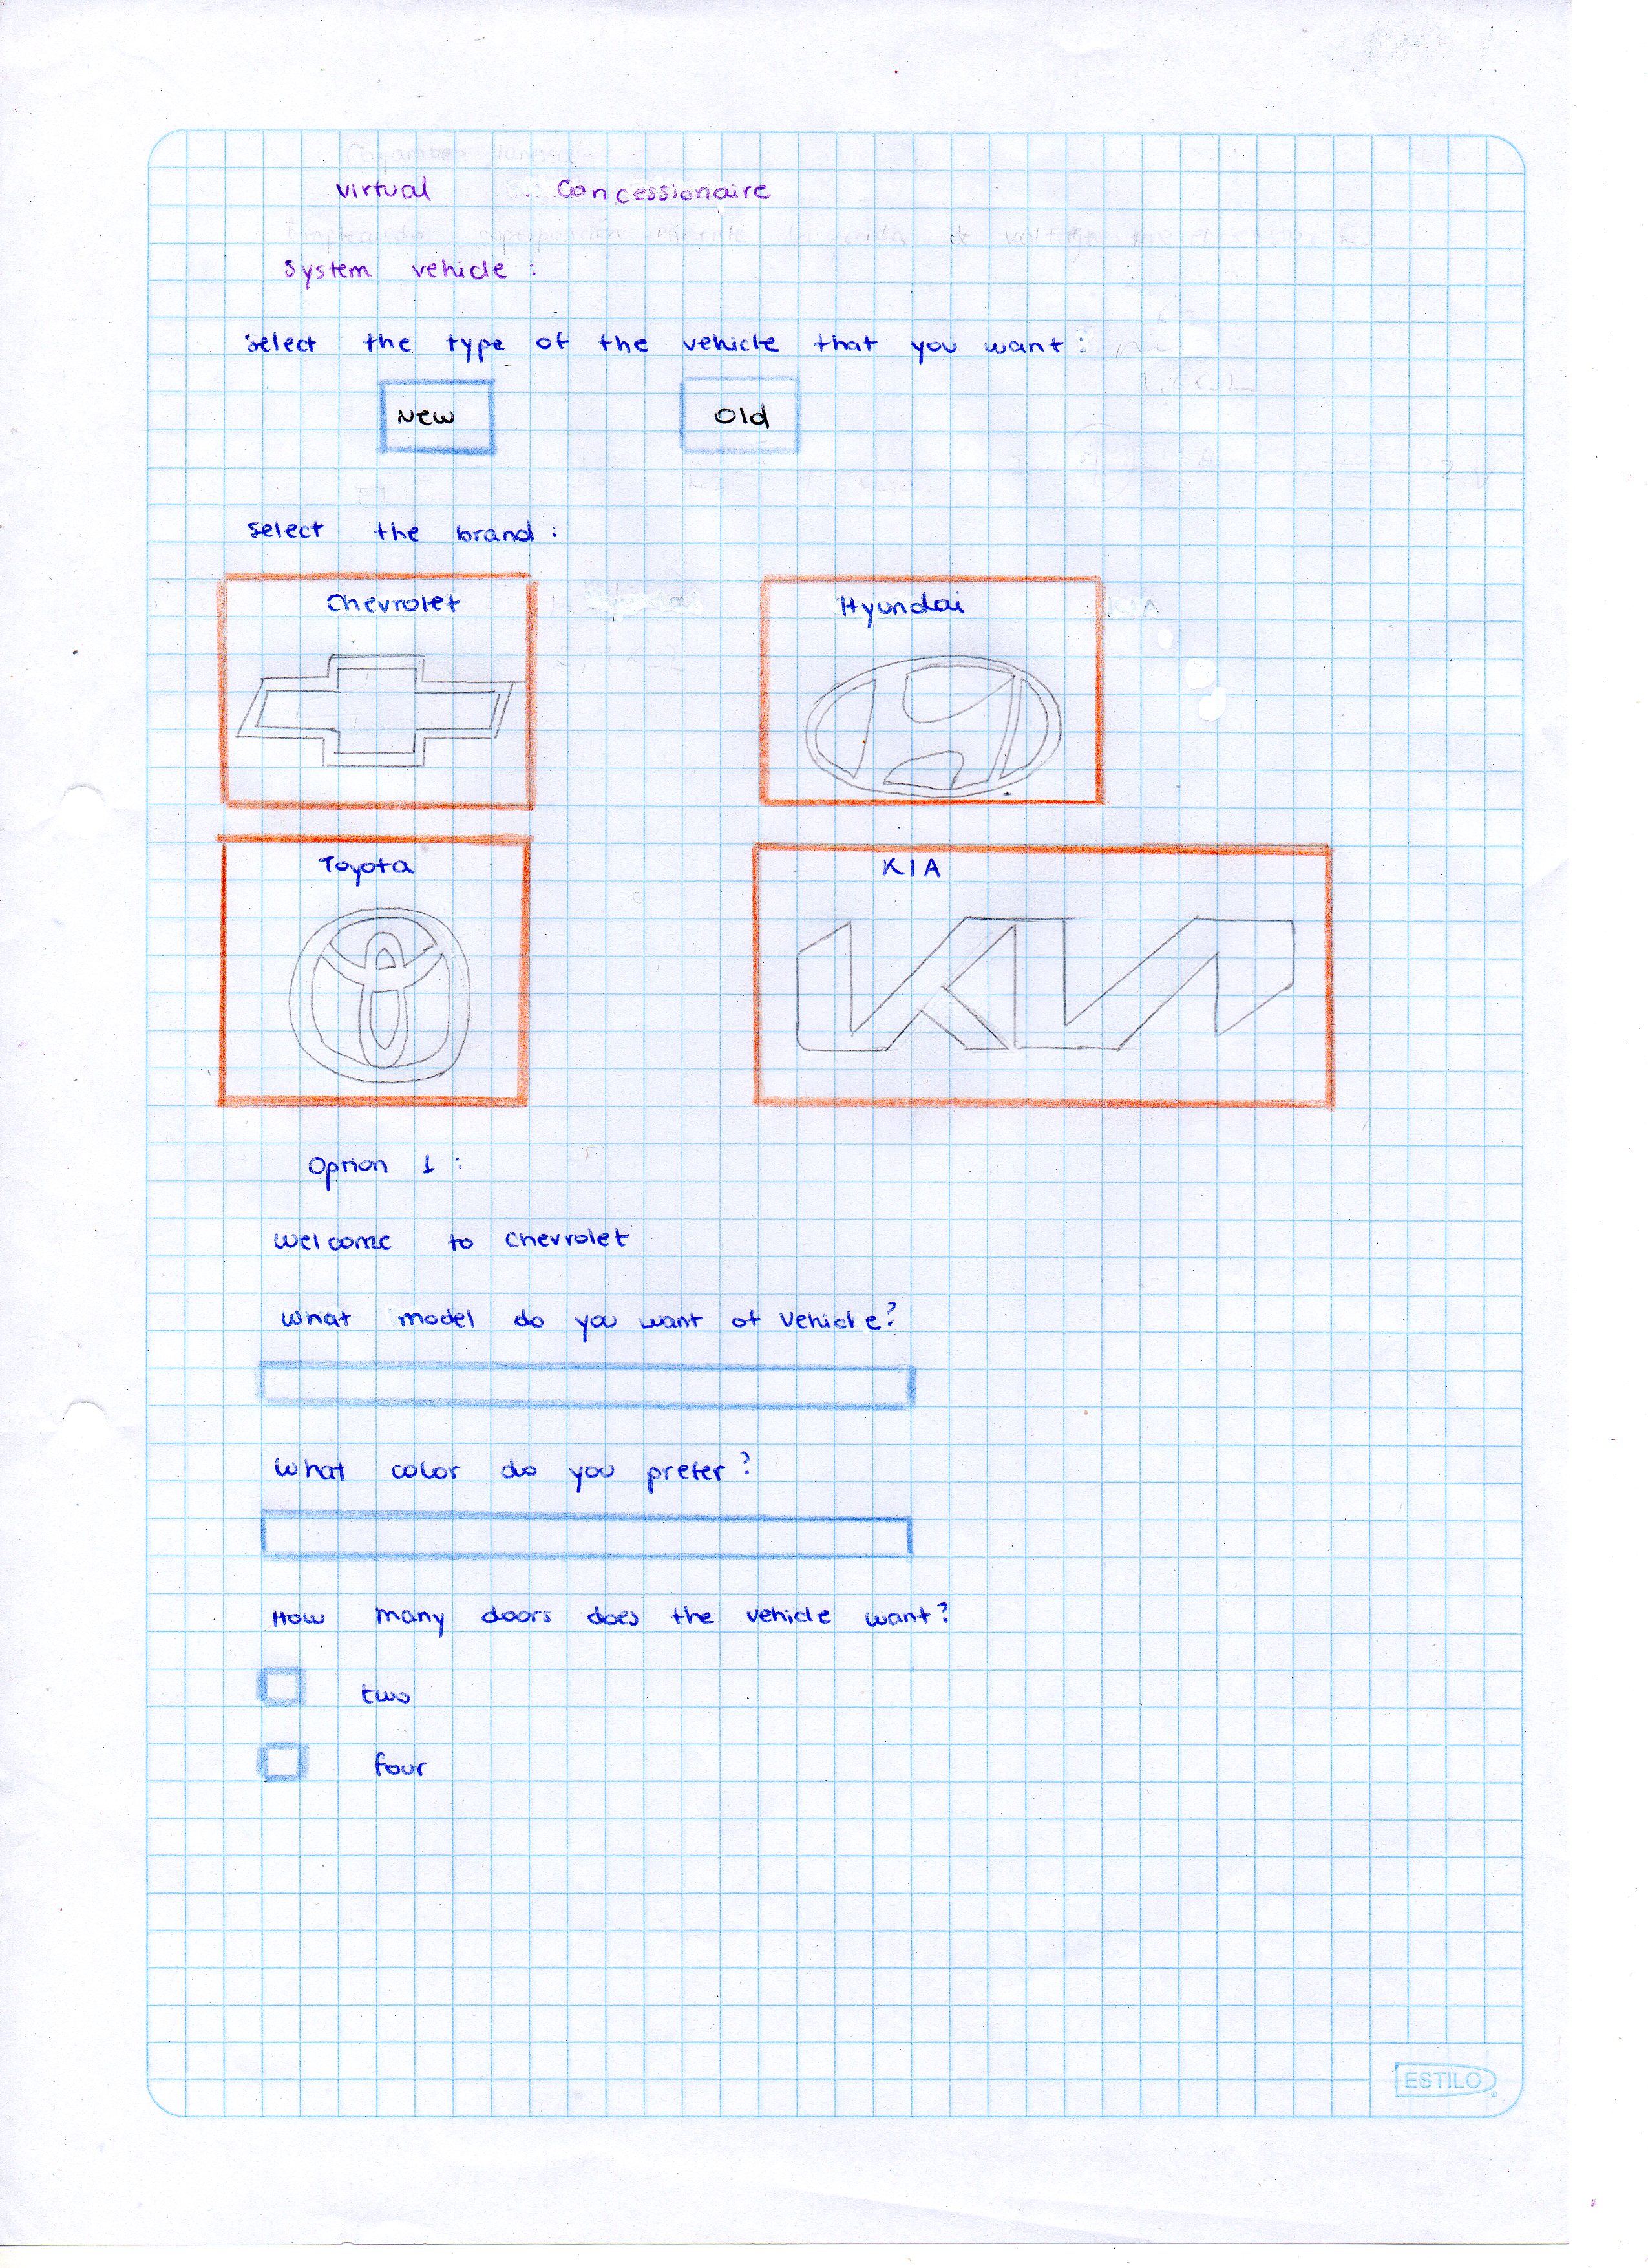 virtual Concessionaire
System vehicle :
Select the type of the vehicle that you want :
New Old
Select the brand :
Chevrolet Hyundai
Toyota KIA
Option 1 :
Welcome to chevrolet
What model do you want of vehicle?
What color do you prefer?
How many doors does the vehicle want?
two
four
ESTILO